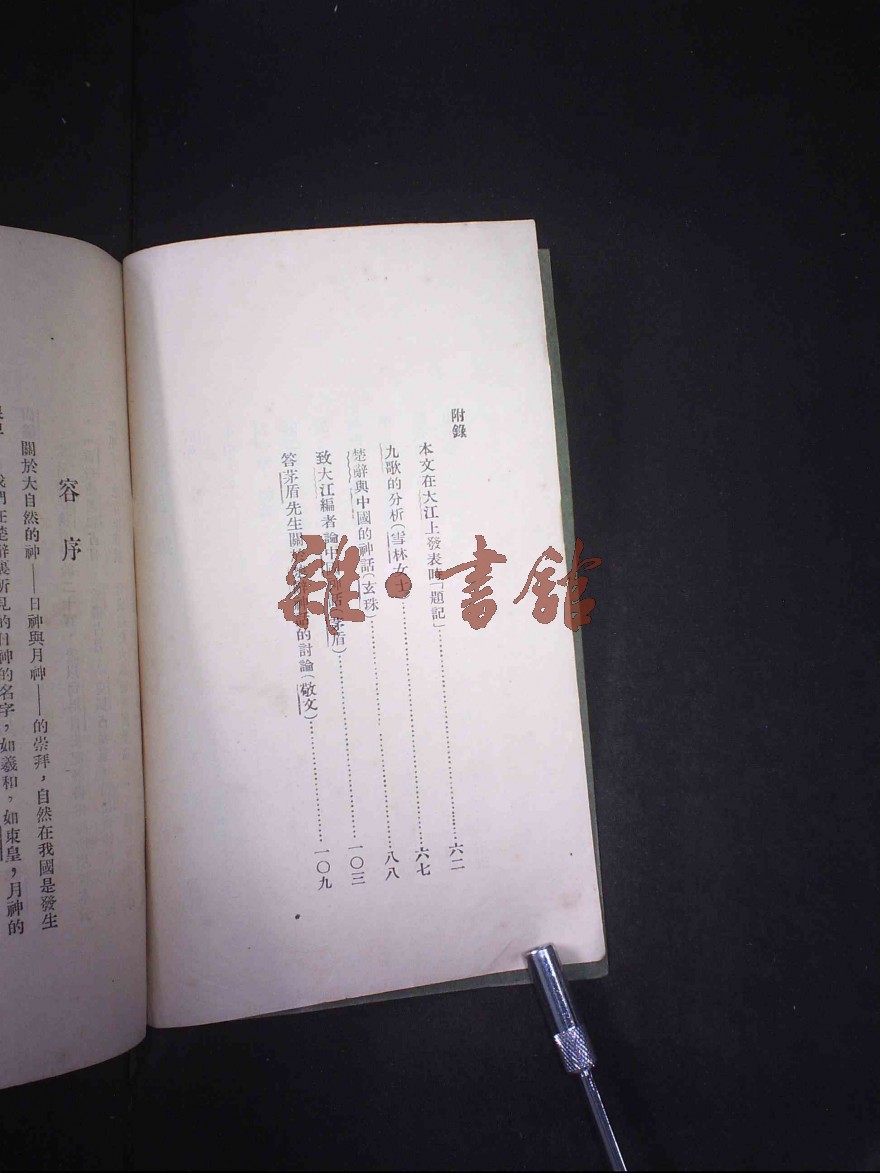 附錄
本文在大江上發表時「題記」…………六二
九歌的分析(雪林女士)…………六七
楚辭與中國的神話(玄珠)…………八八
致大江編者論中國神話(茅盾)…………一〇三
答茅盾先生關於楚辭神話的討論(敬文)…………一〇九
容序
關於大自然的神——日神與月神——的崇拜,自然在我國是發生
我們在楚辭裏所見的日神的名字,如羲和,如東皇,月神的
雜·書館